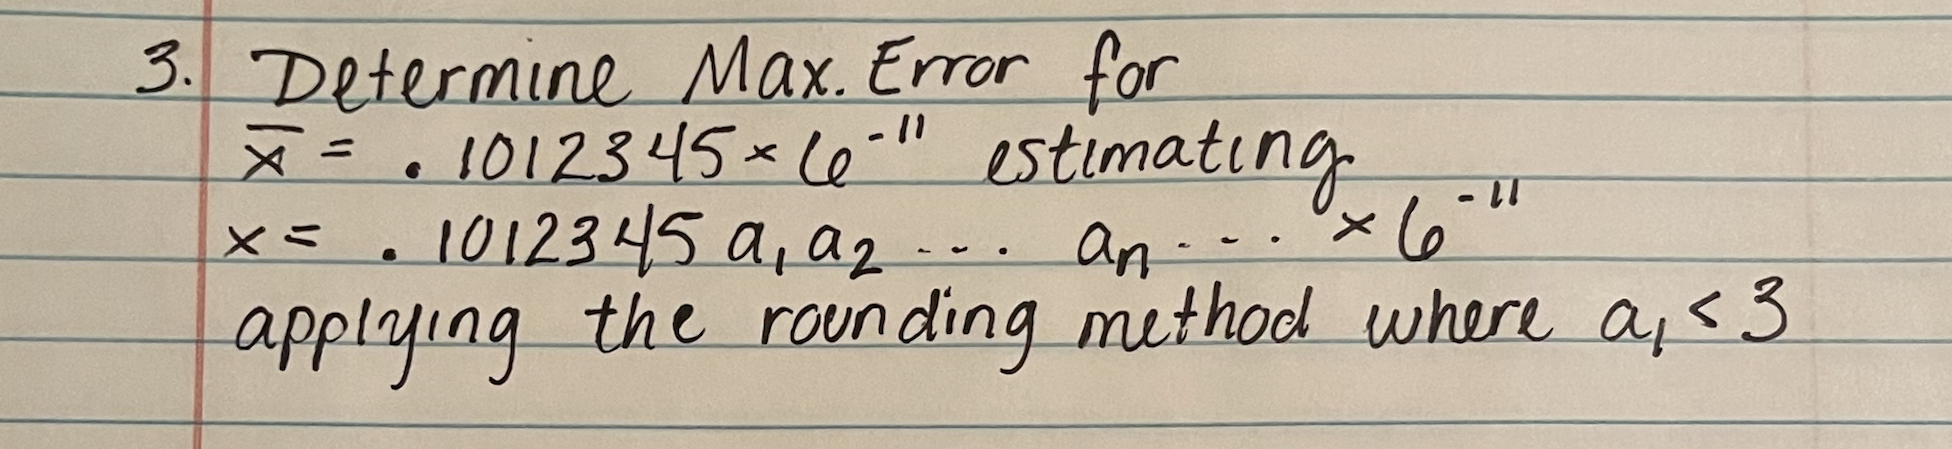 3. Determine Max. Error for
x̄ = .1012345 × 6⁻¹¹ estimating
x = .1012345 a₁ a₂ ... aₙ ... × 6⁻¹¹
applying the rounding method where a₁ < 3